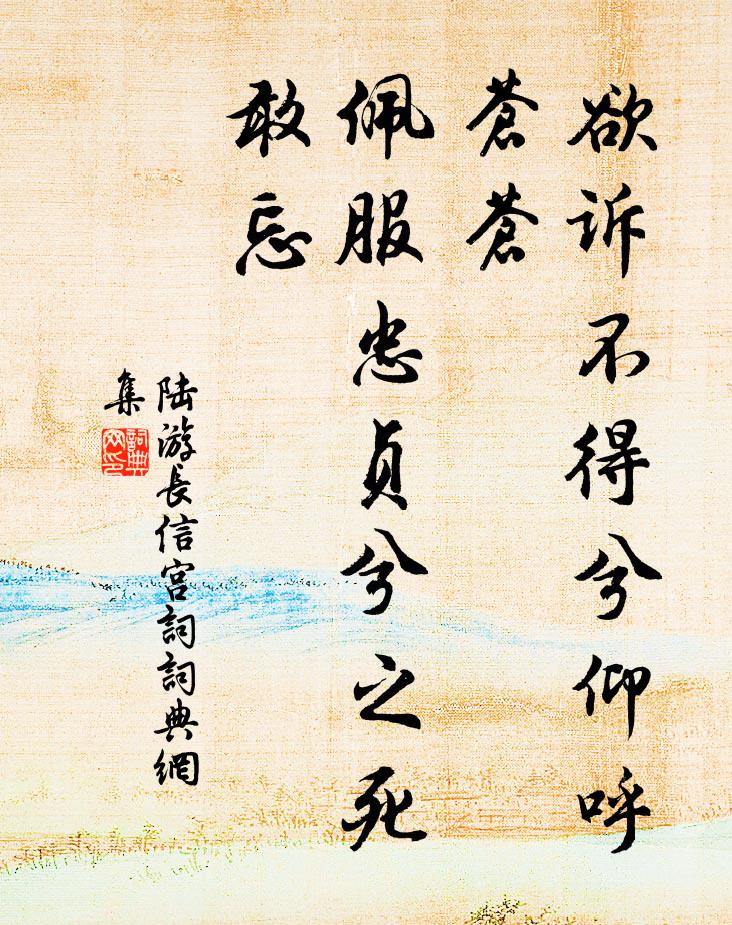 欲诉不得兮仰呼
蒼蒼
佩服忠贞兮之死
敢忘
陆游長信宮詞詞典網
集
詞典
网印